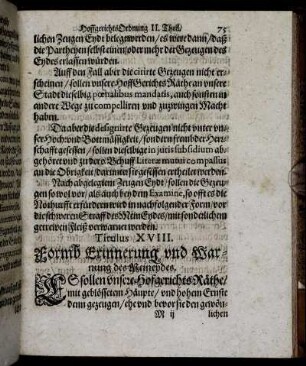 Hoffgerichts Ordnung II. Theil/ 75
lichen Zeugen Eyde belegt werden / es were dann / daß
die Partheyen selbst einen oder mehr der Gezeugen des
Eydes erlassen würden.
Auff den Fall aber die citirte Gezeugen nicht er-
scheinen / sollen unsere HoffGerichts Räthe an unser
Stadt dieselbig pœnalibus mandatis, auch sonsten in
andere Wege zu compelliren und zuzwingen Macht
haben.
Da aber die delegirte Gezeugen nicht unter unse-
rer Hoch und Botmässigkeit / sondern frembder Herr-
schafft gesessen / sollen dieselbige in juris subsidium ab-
gehöret und zu derer Behuff Literæ mutui compassus
an die Obrigkeit / darunter sie gesessen ertheilet werden.
Nach abgelegtem Zeugen Eyde / sollen die Gezeu-
gen so wol vor / als auch bey dem Examine, so offt es die
Nothdurfft erfordern wird in nachfolgender Form / vor
die schweren Straff des Mein Eydes / mit sonderlichem
getrewen Fleiß verwarnet werden.
Titulus XVIII.
Formb Erinnerung und War-
nung des Meineydes.
ES sollen unsere Hofgerichts Räthe /
mit geblössetem Häupte / und hohem Ernste
denn gezeugen / ehe und bevor sie den gewön-
M ij lichen